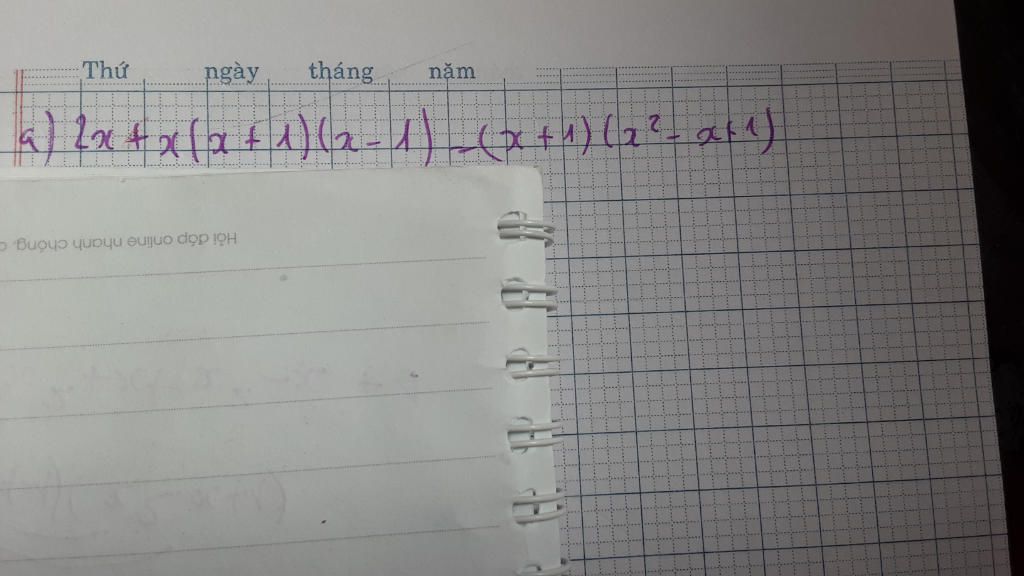 Thứ ngày tháng năm
a) 2x + x(x + 1)(x - 1) - (x + 1)(x² - x + 1)
Hỏi đáp online nhanh chóng,